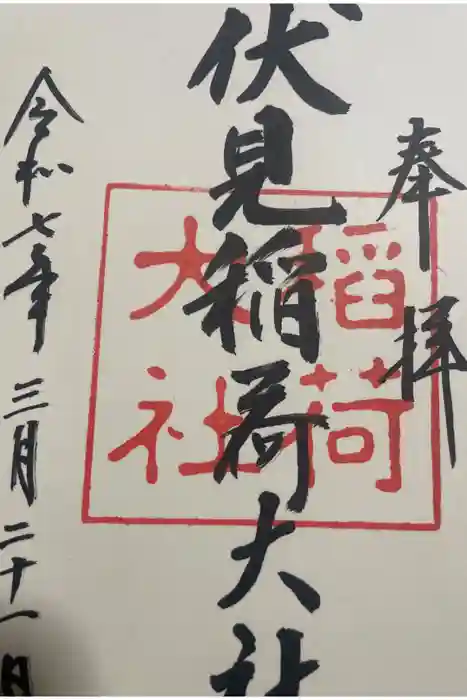 奉拝
伏見稲荷大社
稲荷
大社
令和七年三月二十一日